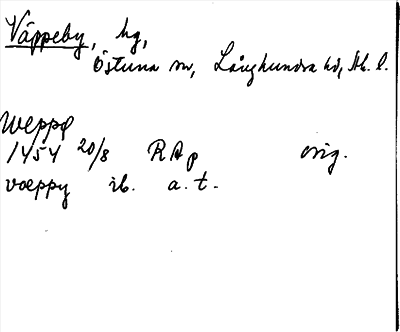 Väppeby, hg,
Östuna sn, Långhundra hd, Sth. l.
weppø
1454 20/8 RAp orig.
væppy ib. a. t.